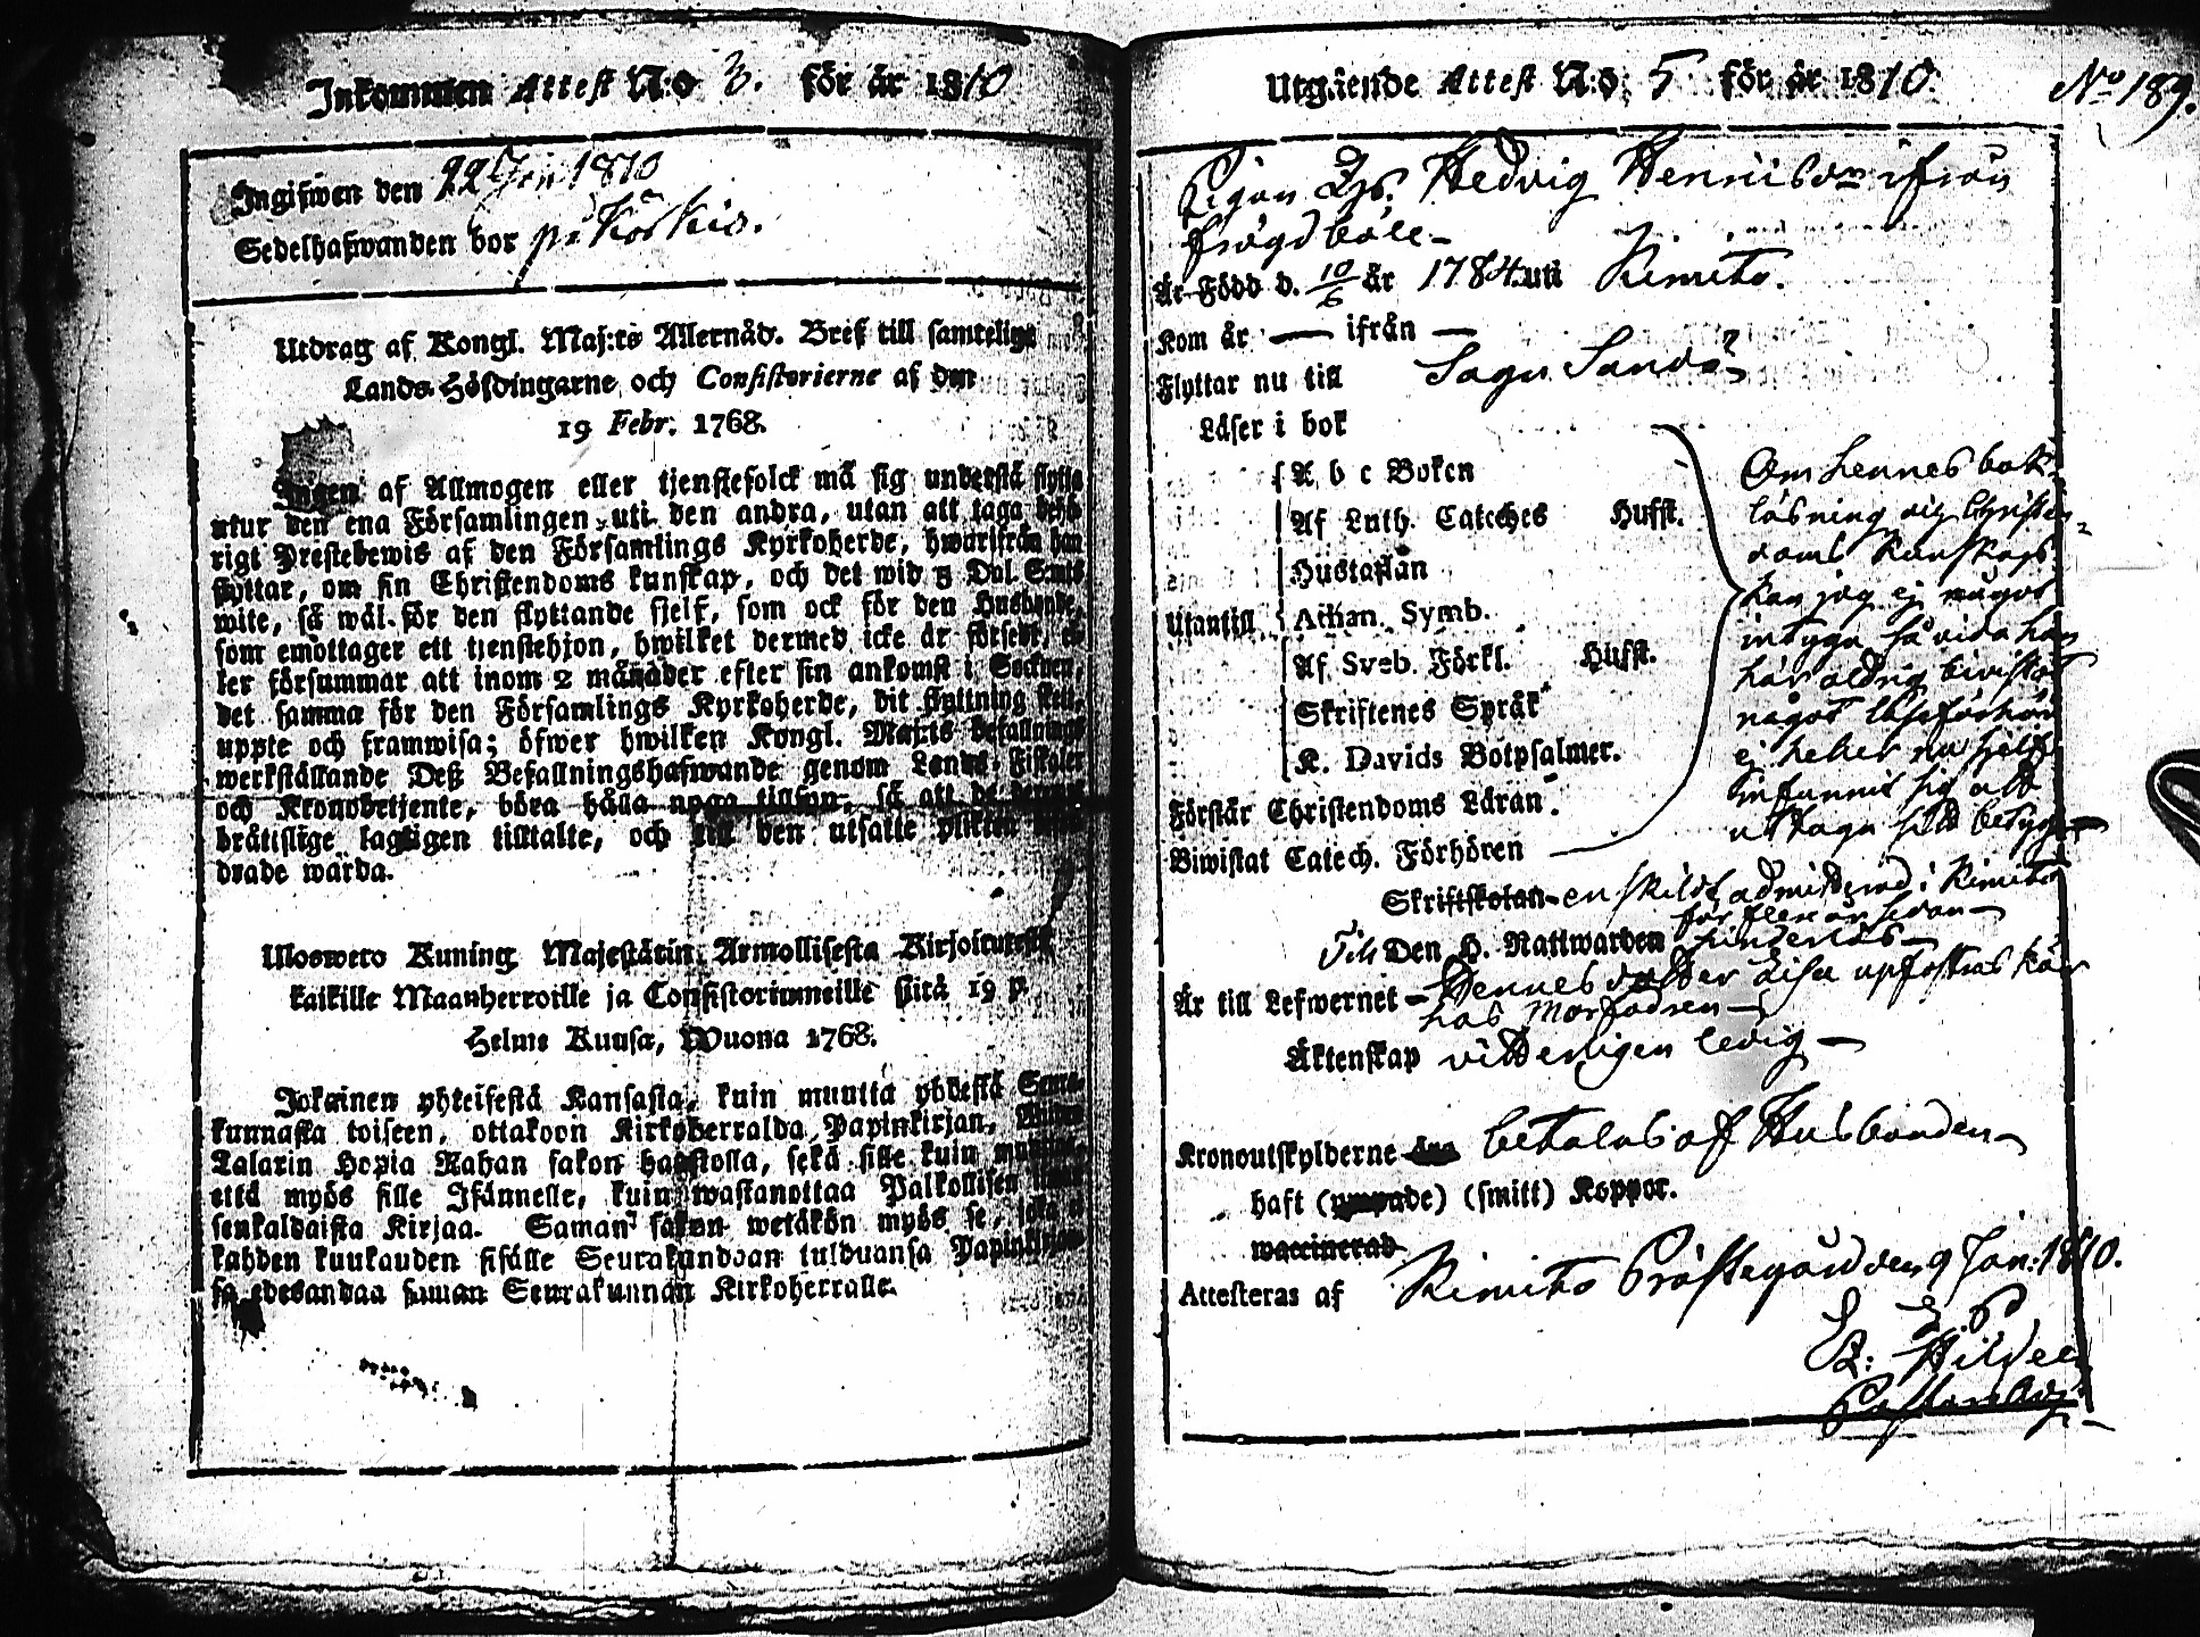 Inkommen Attest N:o 3. för år 1810
Ingifwen den 22 Jan 1810
Sedelhafwanden bor på Körkis.
Utdrag af Kongl. Maj:ts Allernåd. Bref till samtelige
Lands-Höfdingarne och Consistorierne af den
19 Febr. 1768.
Ingen af Allmogen eller tjenstefolck må sig understå flytta
utur den ena Församlingen uti den andra, utan att taga behö-
rigt Prestebewis af den Församlings Kyrkoherde, hwarifrån han
flyttar, om sin Christendoms kunskap, och det wid 5 Dal. S:mts
wite, så wäl för den flyttande sjelf, som ock för den Husbonde,
som emottager ett tjenstehjon, hwilket dermed icke är försedt, el-
ler försummar att inom 2 månader efter sin ankomst i Socknen,
det samma för den Församlings Kyrkoherde, dit flyttning skett,
uppte och framwisa; öfwer hwilken Kongl. Maj:ts befallnings
werkställande Deß Befallningshafwande genom Lands-Fiskaler
och Kronobetjente, böra hålla noga tillsyn, så att de
bråttslige lagligen tilltalte, och till den utsatte plikten
drade warda.
Ulosweto Kuning. Majestätin Armollisesta Kirjoituxesta
kaikille Maanherroille ja Consistoriumeille siitä 19 p.
Helme Kuusa, Wuona 1768.
Jokainen yhteisestä Kansasta, kuin muutta yhdestä Seura-
kunnasta toiseen, ottakoon Kirkoherralda Papinkirjan, Wiiden
Talarin Hopia Rahan sakon haastolla, sekä sille kuin muuttaa,
että myös sille Isännelle, kuin wastanottaa Palkollisen ilman
senkaldaista Kirjaa. Saman sakon wetäkön myös se, joka ei
kahden kuukauden sisälle Seurakundaan tulduansa Papinkirjan-
sa edesandaa saman Seurakunnan Kirkoherralle.
Utgående Attest N:o 5 för år 1810.
No 189.
Pigan Hedvig Henricsdr ifrån
Frögdböle
Är Född d. 10/6 år 1784 uti Kimito.
Kom år — ifrån —
Flyttar nu till Sagu Sandö
Läser i bok
A b c Boken
Af Luth. Cateches Husst.
Hustaflan
Utantill Athan. Symb.
Af Sveb. Förkl. Husst.
Skriftenes Språk
K. Davids Botpsalmer.
Förstår Christendoms Läran.
Biwistat Catech. Förhören
Om hennes bok-
läsning och Christen-
doms kunskap
kan jag ej något
intyga så vida hon
här aldrig bivistat
något läseförhör
ej heller nu sjelf
infunnit sig att
uttaga sitt betyg
Skriftskolan enskildt admitterad i Kimito
för flere år sedan
Till Den H. Nattwarden hinderlös
Är till Lefwernet Hennes dotter Lisa upfostras här
hos Morfadren
Äktenskap vitterligen ledig
Kronoutskylderne betalas af Husbonden
haft (ympade) (smitt) Koppor.
waccinerad
Attesteras af Kimito Prästegård den 9 Jan: 1810.